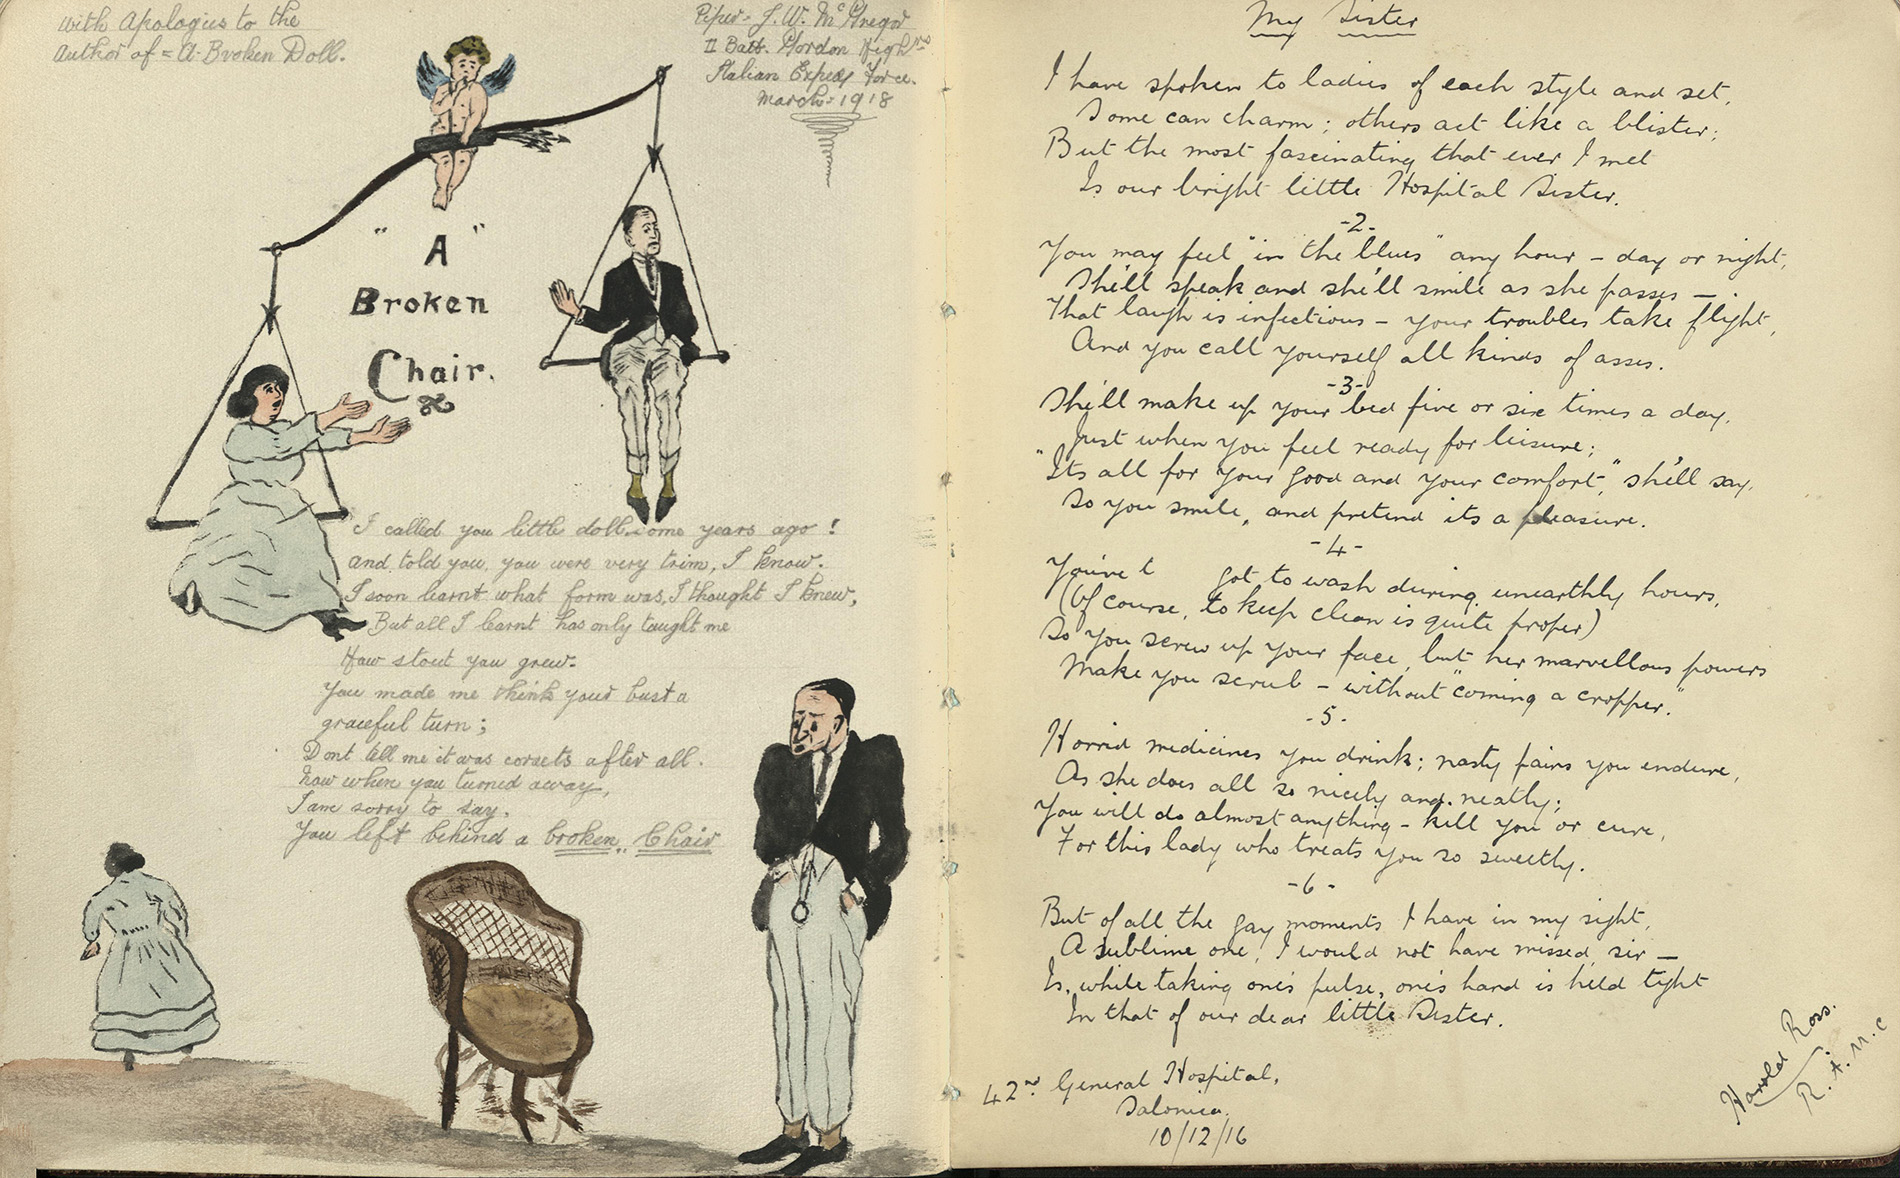 With Apologies to the
Author of = A Broken Doll.
Piper- J. W. McGregor
II Batt. Gordon Highnrs
Italian Expedy Force.
March- 1918
"A"
Broken
Chair.
I called you little doll some years ago!
and told you, you were very trim, I know.
I soon learnt what form was, I thought I knew,
But all I learnt has only taught me
How stout you grew.
You made me think your bust a
graceful turn;
Dont tell me it was corsets after all.
now when you turned away,
I am sorry to say.
You left behind a broken Chair
My Sister
I have spoken to ladies of each style and set,
Some can charm; others act like a blister;
But the most fascinating that ever I met
Is our bright little Hospital Sister.
-2-
You may feel "in the blues" any hour - day or night,
She'll speak and she'll smile as she passes -
That laugh is infectious - your troubles take flight,
And you call yourself all kinds of asses.
-3-
She'll make up your bed five or six times a day,
Just when you feel ready for leisure;
"Its all for your good and your comfort," she'll say,
So you smile, and pretend its a pleasure.
-4-
You've got to wash during unearthly hours,
(Of course, to keep clean is quite proper)
So you screw up your face, but her marvellous powers
Make you scrub - without "coming a cropper."
-5-
Horrid medicines you drink; nasty pains you endure,
As she does all so nicely and neatly;
You will do almost anything - kill you or cure,
For this lady who treats you so sweetly.
-6-
But of all the gay moments I have in my sight,
A sublime one, I would not have missed, sir -
Is, while taking one's pulse, one's hand is held tight
In that of our dear little Sister.
42nd General Hospital,
Salonica.
10/12/16
Harold Ross.
R.A.M.C